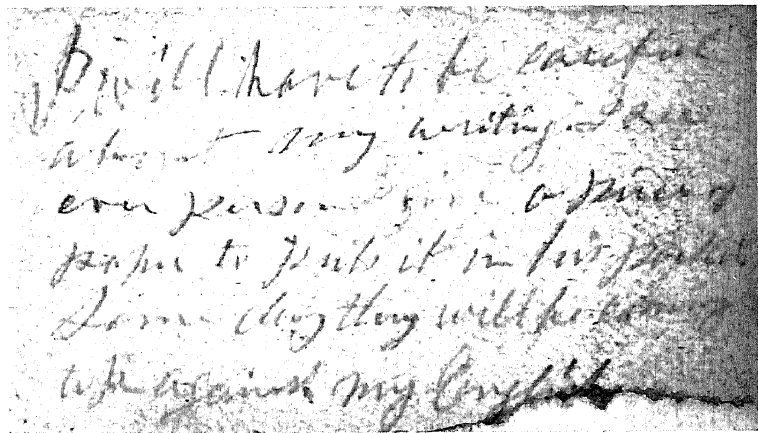 I will have to be careful
about my writing. I see
ever person give a piece of
paper to puts it in his pocket
Some day they will be coming
up against my English